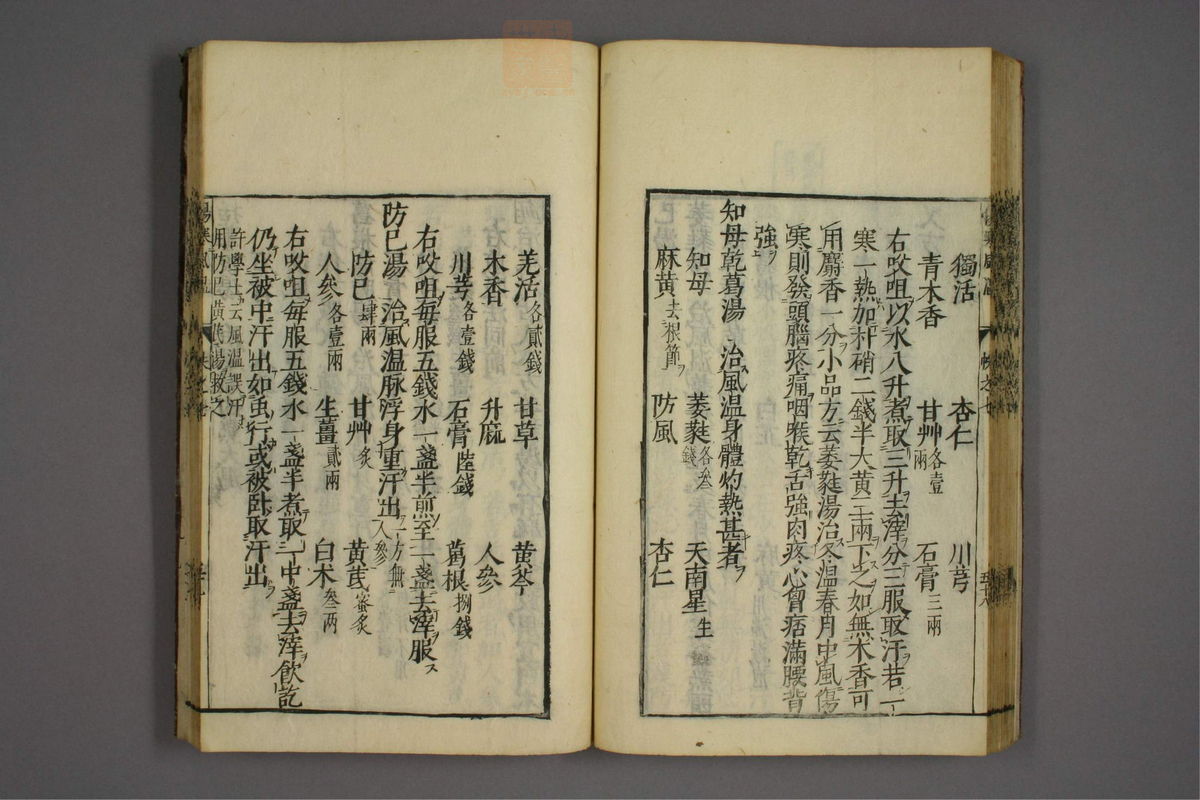 獨活 杏仁 川芎
青木香 甘艸各壹兩 石膏三兩
右㕮咀以水八升煮取三升去滓分三服取汗若一
寒一熱加朴硝二錢半大黃二兩下之如無木香可
用麝香一分小品方云萎蕤湯治冬溫春月中風傷
寒則發頭腦疼痛咽喉乾舌強肉疼心胷痞滿腰背
強
知母乾葛湯 治風温身體灼熱甚者
知母 萎蕤各叁錢 天南星生
麻黃去根節 防風 杏仁
羌活各貳錢 甘草 黃芩
木香 升麻 人參
川芎各壹錢 石膏陸錢 葛根捌錢
右㕮咀每服五錢水一盞半煎至一盞去滓服
防巳湯 治風温脉浮身重汗出一方無人參
防巳肆兩 甘艸炙 黃芪蜜炙
人參各壹兩 生薑貳兩 白朮叁兩
右㕮咀每服五錢水一盞半煮取一中盞去滓飲訖
仍坐被中汗出如虫行或被卧取汗出
許學士云風温誤汗
用防巳黃芪湯救之